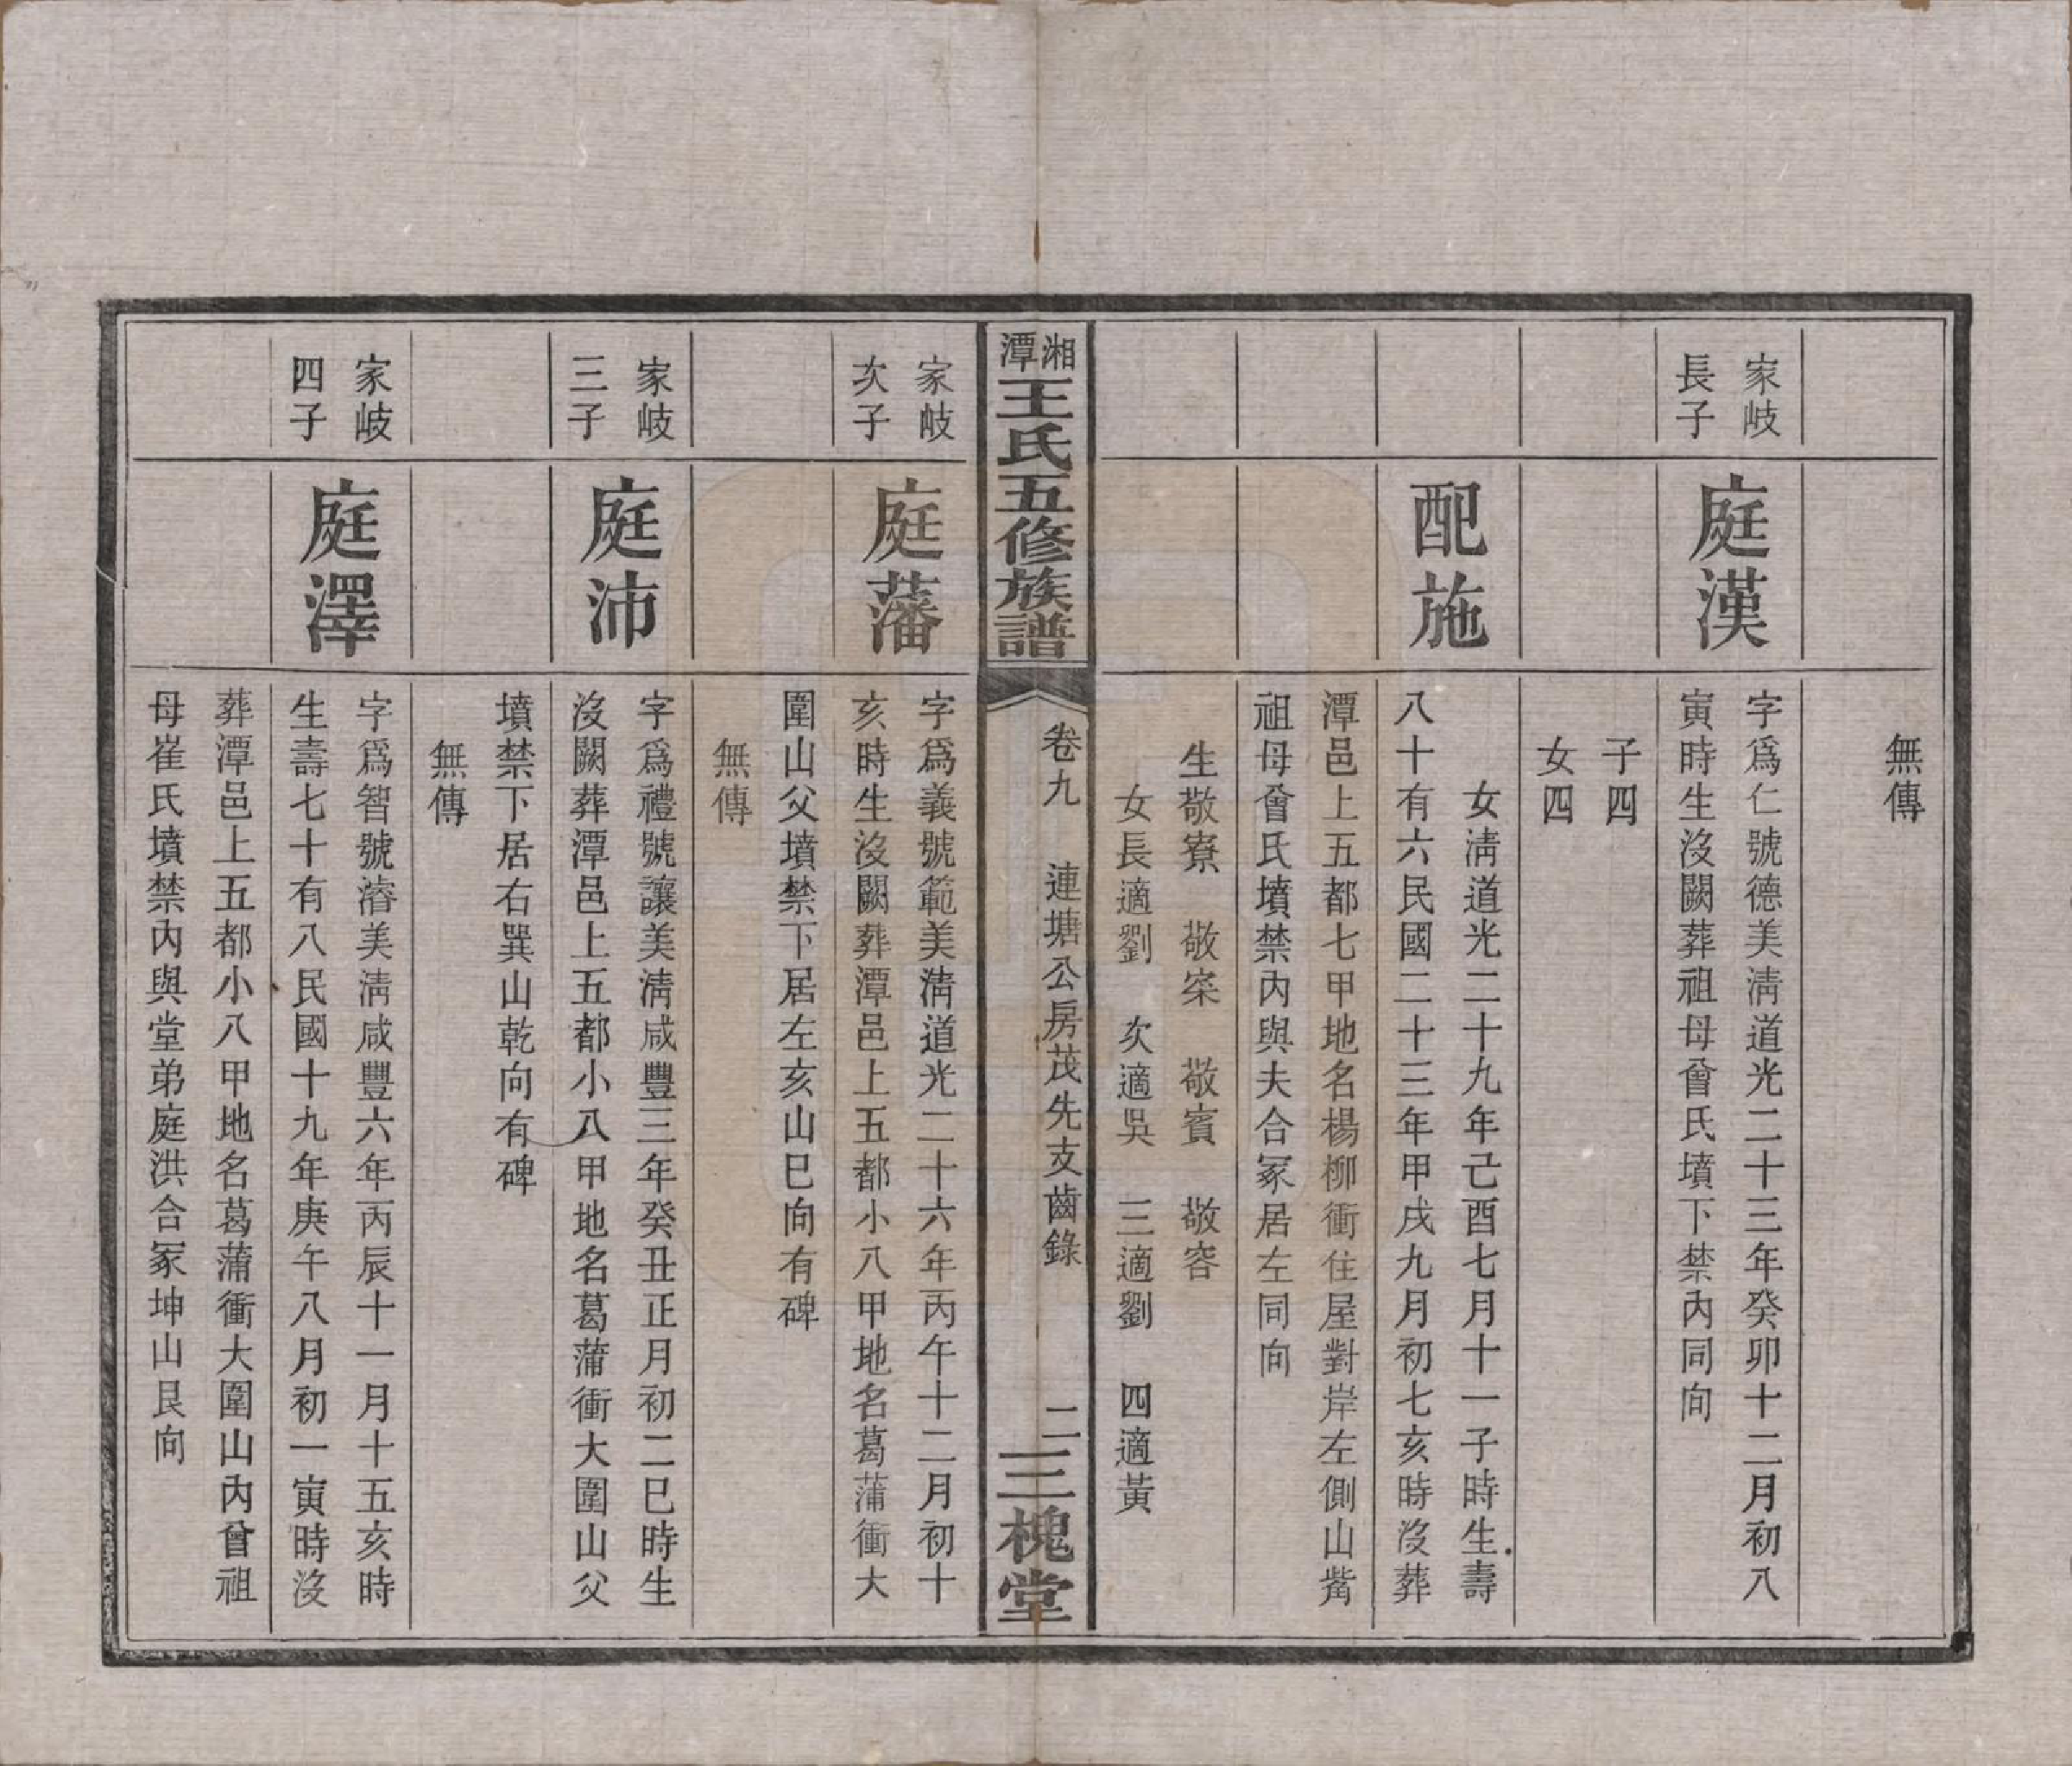 無傳
家岐
長子
庭漢
字爲仁號德美淸道光二十三年癸卯十二月初八
寅時生沒闕葬祖母曾氏墳下禁內同向
子四
女四
配施
女淸道光二十九年己酉七月十一子時生壽
八十有六民國二十三年甲戌九月初七亥時沒葬
潭邑上五都七甲地名楊柳衝住屋對岸左側山觜
祖母曾氏墳禁內與夫合冢居左同向
生敬寮 敬寀 敬賓 敬容
女長適劉 次適吳 三適劉 四適黃
湘潭王氏五修族譜
卷九 連塘公房茂先支齒錄
二
三槐堂
家岐
次子
庭藩
字爲義號範美淸道光二十六年丙午十二月初十
亥時生沒闕葬潭邑上五都小八甲地名葛蒲衝大
圍山父墳禁下居左亥山巳向有碑
無傳
家岐
三子
庭沛
字爲禮號讓美淸咸豐三年癸丑正月初二巳時生
沒闕葬潭邑上五都小八甲地名葛蒲衝大圍山父
墳禁下居右巽山乾向有碑
無傳
家岐
四子
庭澤
字爲智號濬美淸咸豐六年丙辰十一月十五亥時
生壽七十有八民國十九年庚午八月初一寅時沒
葬潭邑上五都小八甲地名葛蒲衝大圍山內曾祖
母崔氏墳禁內與堂弟庭洪合冢坤山艮向